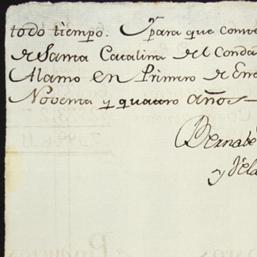 todo tiempo. Y para que conve
de Santa Catalina del Conda
Alamo en Primero de Ene
Noventa y quatro años
Bernabe
y Vela